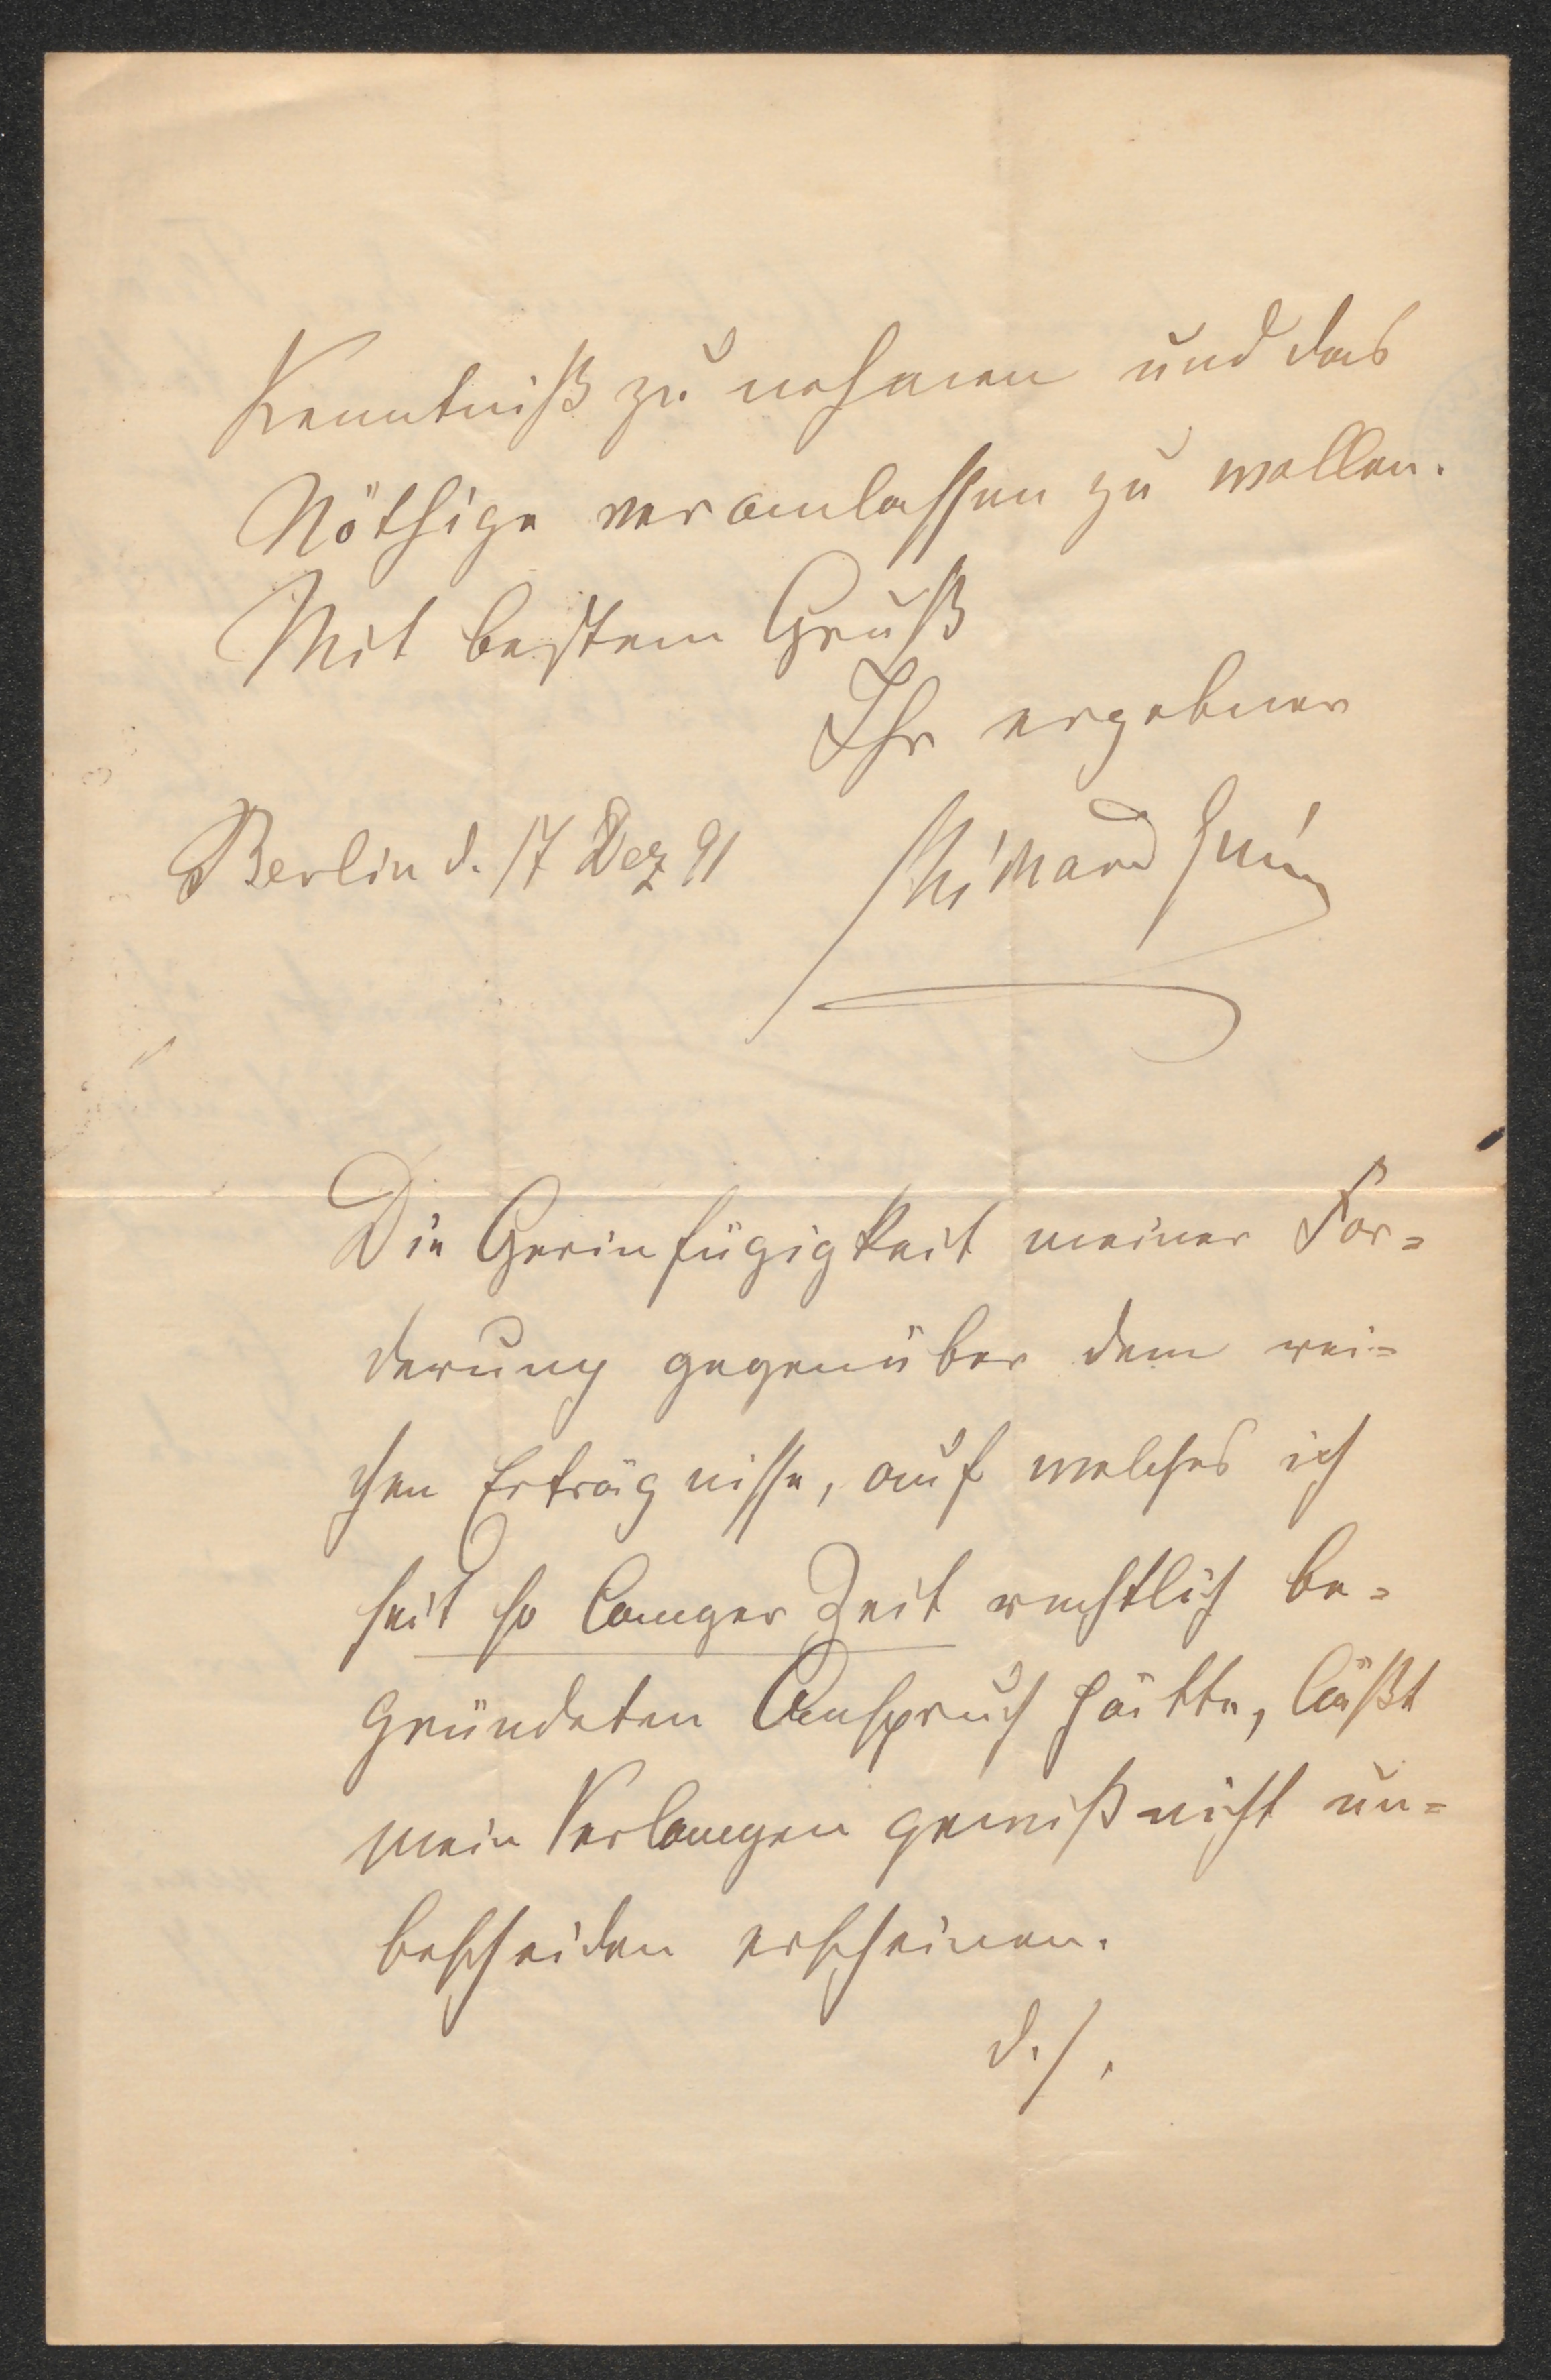 Kenntniß zu nehmen und das
Nöthige veranlassen zu wollen.
Mit bestem Gruß
Ihr ergebner
Berlin d. 17 Dez 91
Die Gerinfügigkeit meiner For=
derung gegenüber dem rei=
chen Erträgnisse, auf welches ich
seit so langer Zeit rechtlich be=
gründeten Anspruch hätte, läßt
mein Verlangen gewiß nicht un=
bescheiden erscheinen.
d./.